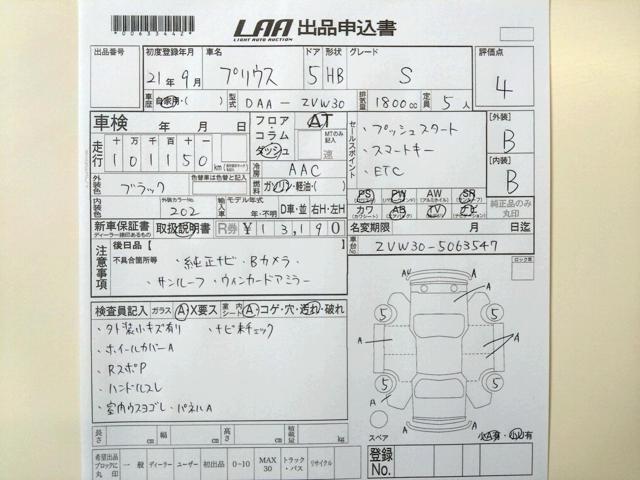 *00633442*
LAA 出品申込書
LIGHT AUTO AUCTION
出品番号 初度登録年月 車名 ドア 形状 グレード 評価点
21年 9月 プリウス 5 HB S 4
車歴 自家用・( ) 型式 DAA-ZVW30 排気量 1800cc 定員 5人
車検 年 月 日 フロア・コラム・ダッシュ AT MTのみ記入 速
セールスポイント ・プッシュスタート
・スマートキー
・ETC
[外装] B
[内装] B
走行 十 万 千 百 十 一
101150 km
冷房 AAC
燃料 ガソリン・軽油・( )
外装色 ブラック 色替車は色替と記入
PS PW AW SR
カワ AB TV ナビ
純正品のみ丸印
内装色 外装カラーNo. 202 輸入車 モデル年式 年・不明 D車・並 右H・左H
新車保証書 取扱説明書 R券 ¥13,190
ディーラー捺印のあるもの
名変期限 月 日迄
車台No. ZVW30-5063547
注意事項 後日品【 】
不具合箇所等 ・純正ナビ・Bカメラ
・サンルーフ・ウィンカードアミラー
ロック有
検査員記入 ガラス A X要ス 室内シート A・コゲ・穴・汚れ・破れ
・外装小キズ有り ・ナビ未チェック
・ホイールカバーA
・RスポP
・ハンドルスレ
・室内ウスヨゴレ・パネルA
AU A
A
5 5
A A
5 5
A A
A
スペア 少A有・少U有
長さ cm 幅 cm 高さ cm 積載量 kg
希望出品ブロックに丸印 一般 ディーラー ユーザー 初出品 0~10 MAX 30 トラック・バス リサイクル
登録No.